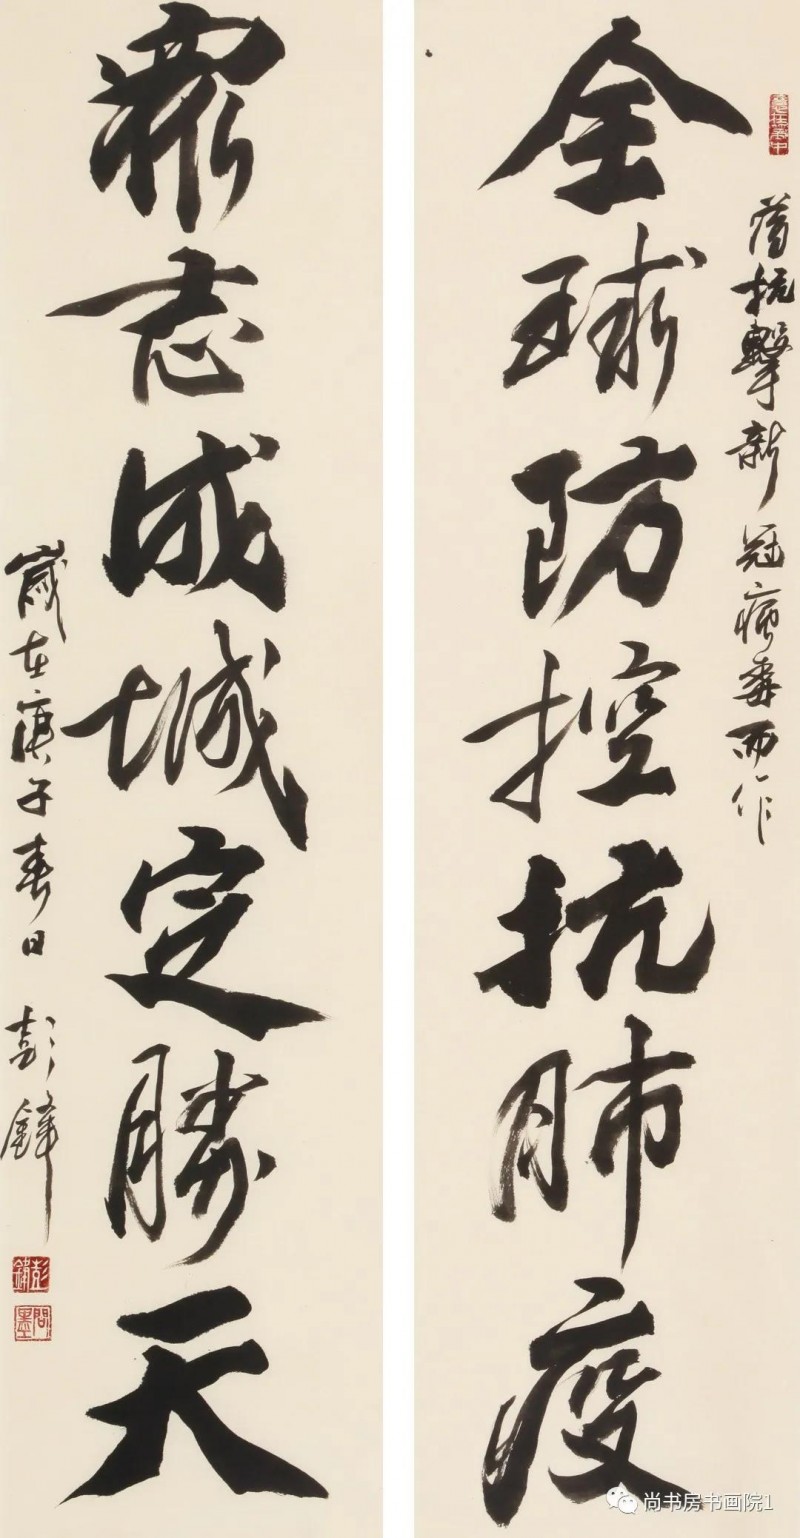 抗擊新冠病毒而作
全球防控抗肺疫
衆志成城定勝天
歲在庚子春日 彭鋒
彭鋒
問墨
尚书房书画院1